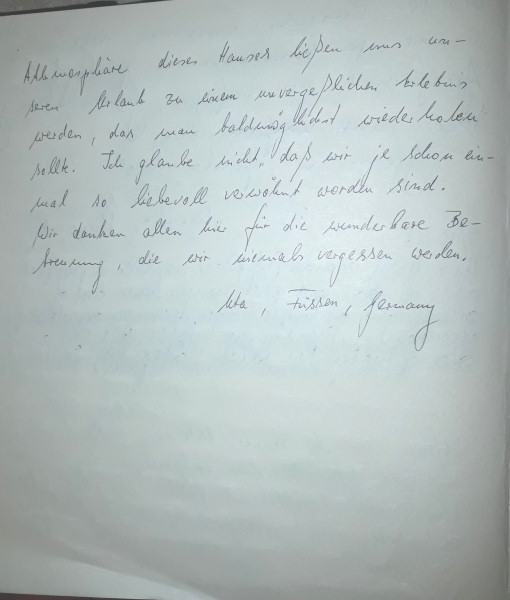 Athmosphäre dieses Hauses ließen uns un-
seren Urlaub zu einem unvergeßlichen Erlebnis
werden, das man baldmöglichst wiederholen
sollte. Ich glaube nicht, daß wir je schon ein-
mal so liebevoll verwöhnt worden sind.
Wir danken allen hier für die wunderbare Be-
treuung, die wir niemals vergessen werden.
Uta, Füssen, Germany